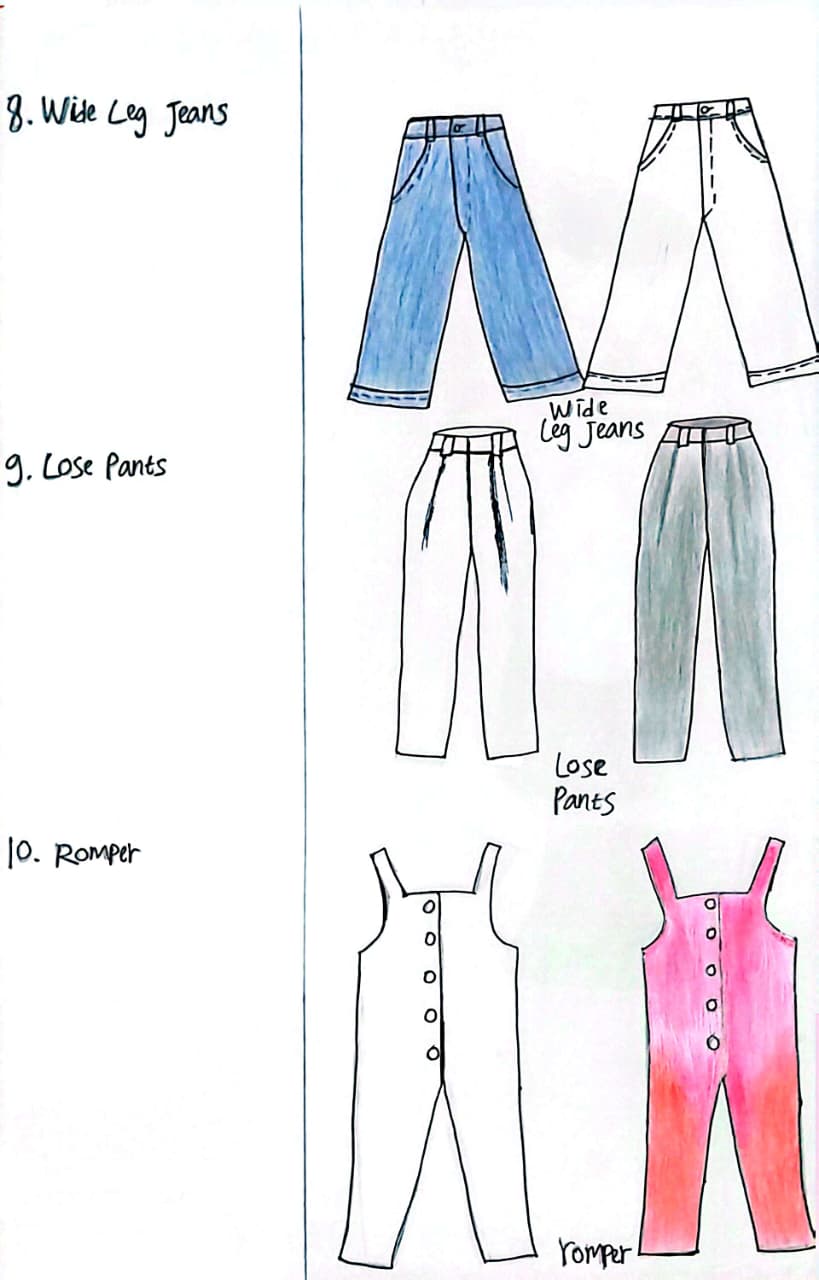 8. Wide Leg Jeans
Wide
Leg Jeans
9. Lose Pants
Lose
Pants
10. Romper
romper